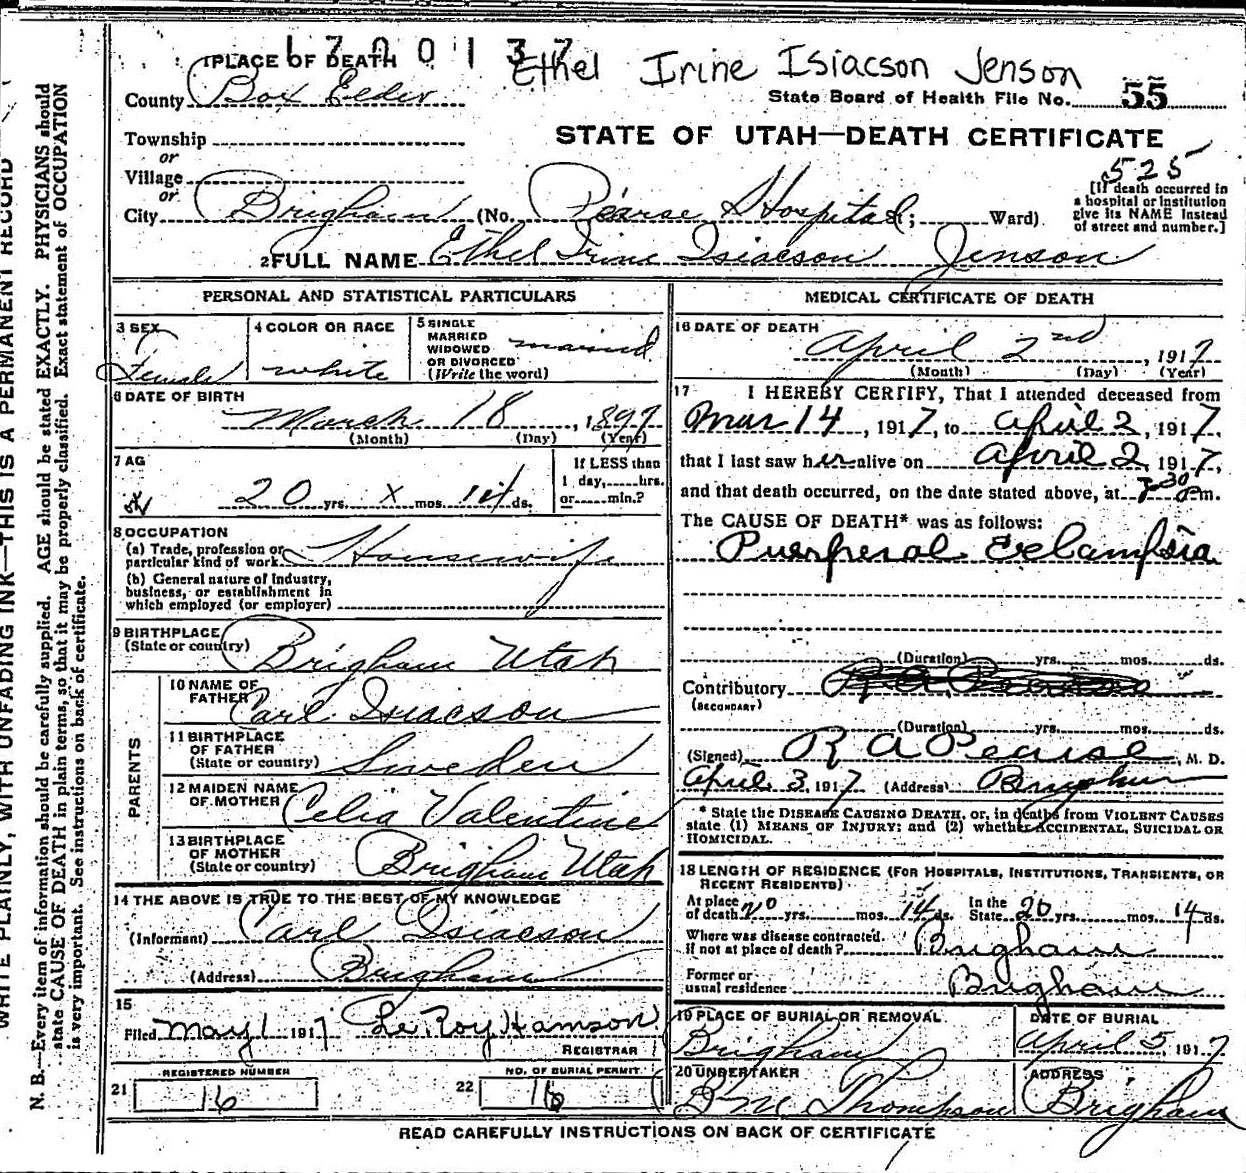 1700137
PLACE OF DEATH
Ethel Irine Isiacson Jenson
County Box Elder
State Board of Health File No. 55
Township
or
STATE OF UTAH—DEATH CERTIFICATE
Village
or
525
City Brigham (No. Pearse Hospital St; Ward)
[If death occurred in
a hospital or institution
give its NAME instead
of street and number.]
2 FULL NAME Ethel Irine Isiacson Jenson
PERSONAL AND STATISTICAL PARTICULARS
3 SEX
Female
4 COLOR OR RACE
white
5 SINGLE
MARRIED
WIDOWED
OR DIVORCED
(Write the word)
married
6 DATE OF BIRTH
March 18, 1897
(Month) (Day) (Year)
7 AG
20 yrs. x mos. 14 ds.
If LESS than
1 day, hrs.
or min.?
8 OCCUPATION
(a) Trade, profession or
particular kind of work Housewife
(b) General nature of Industry,
business, or establishment in
which employed (or employer)
9 BIRTHPLACE
(State or country) Brigham Utah
PARENTS
10 NAME OF
FATHER Carl Isiacson
11 BIRTHPLACE
OF FATHER
(State or country) Sweden
12 MAIDEN NAME
OF MOTHER Celia Valentine
13 BIRTHPLACE
OF MOTHER
(State or country) Brigham Utah
14 THE ABOVE IS TRUE TO THE BEST OF MY KNOWLEDGE
(Informant) Carl Isiacson
(Address) Brigham
15
Filed May 1 1917 Le Roy Hamson
REGISTRAR
REGISTERED NUMBER
21 16
NO. OF BURIAL PERMIT
22 16
MEDICAL CERTIFICATE OF DEATH
16 DATE OF DEATH
April 2nd, 1917
(Month) (Day) (Year)
17 I HEREBY CERTIFY, That I attended deceased from
Mar 14, 1917, to April 2, 1917,
that I last saw her alive on April 2, 1917,
and that death occurred, on the date stated above, at 7-30 Pm.
The CAUSE OF DEATH* was as follows:
Puerperal Eclampsia
(Duration) yrs. mos. ds.
Contributory
(SECONDARY)
(Duration) yrs. mos. ds.
(Signed) R A Pearse, M. D.
April 3, 1917 (Address) Brigham
* State the DISEASE CAUSING DEATH, or, in deaths from VIOLENT CAUSES
state (1) MEANS OF INJURY; and (2) whether ACCIDENTAL, SUICIDAL OR
HOMICIDAL.
18 LENGTH OF RESIDENCE (FOR HOSPITALS, INSTITUTIONS, TRANSIENTS, OR
RECENT RESIDENTS)
At place
of death 20 yrs. mos. 14 ds.
In the
State 20 yrs. mos. 14 ds.
Where was disease contracted
if not at place of death? Brigham
Former or
usual residence Brigham
19 PLACE OF BURIAL OR REMOVAL
Brigham
DATE OF BURIAL
April 5, 1917
20 UNDERTAKER
B M Thompson
ADDRESS
Brigham
READ CAREFULLY INSTRUCTIONS ON BACK OF CERTIFICATE
WRITE PLAINLY, WITH UNFADING INK—THIS IS A PERMANENT RECORD
N. B.—Every item of information should be carefully supplied. AGE should be stated EXACTLY. PHYSICIANS should
state CAUSE OF DEATH in plain terms, so that it may be properly classified. Exact statement of OCCUPATION
is very important. See instructions on back of certificate.